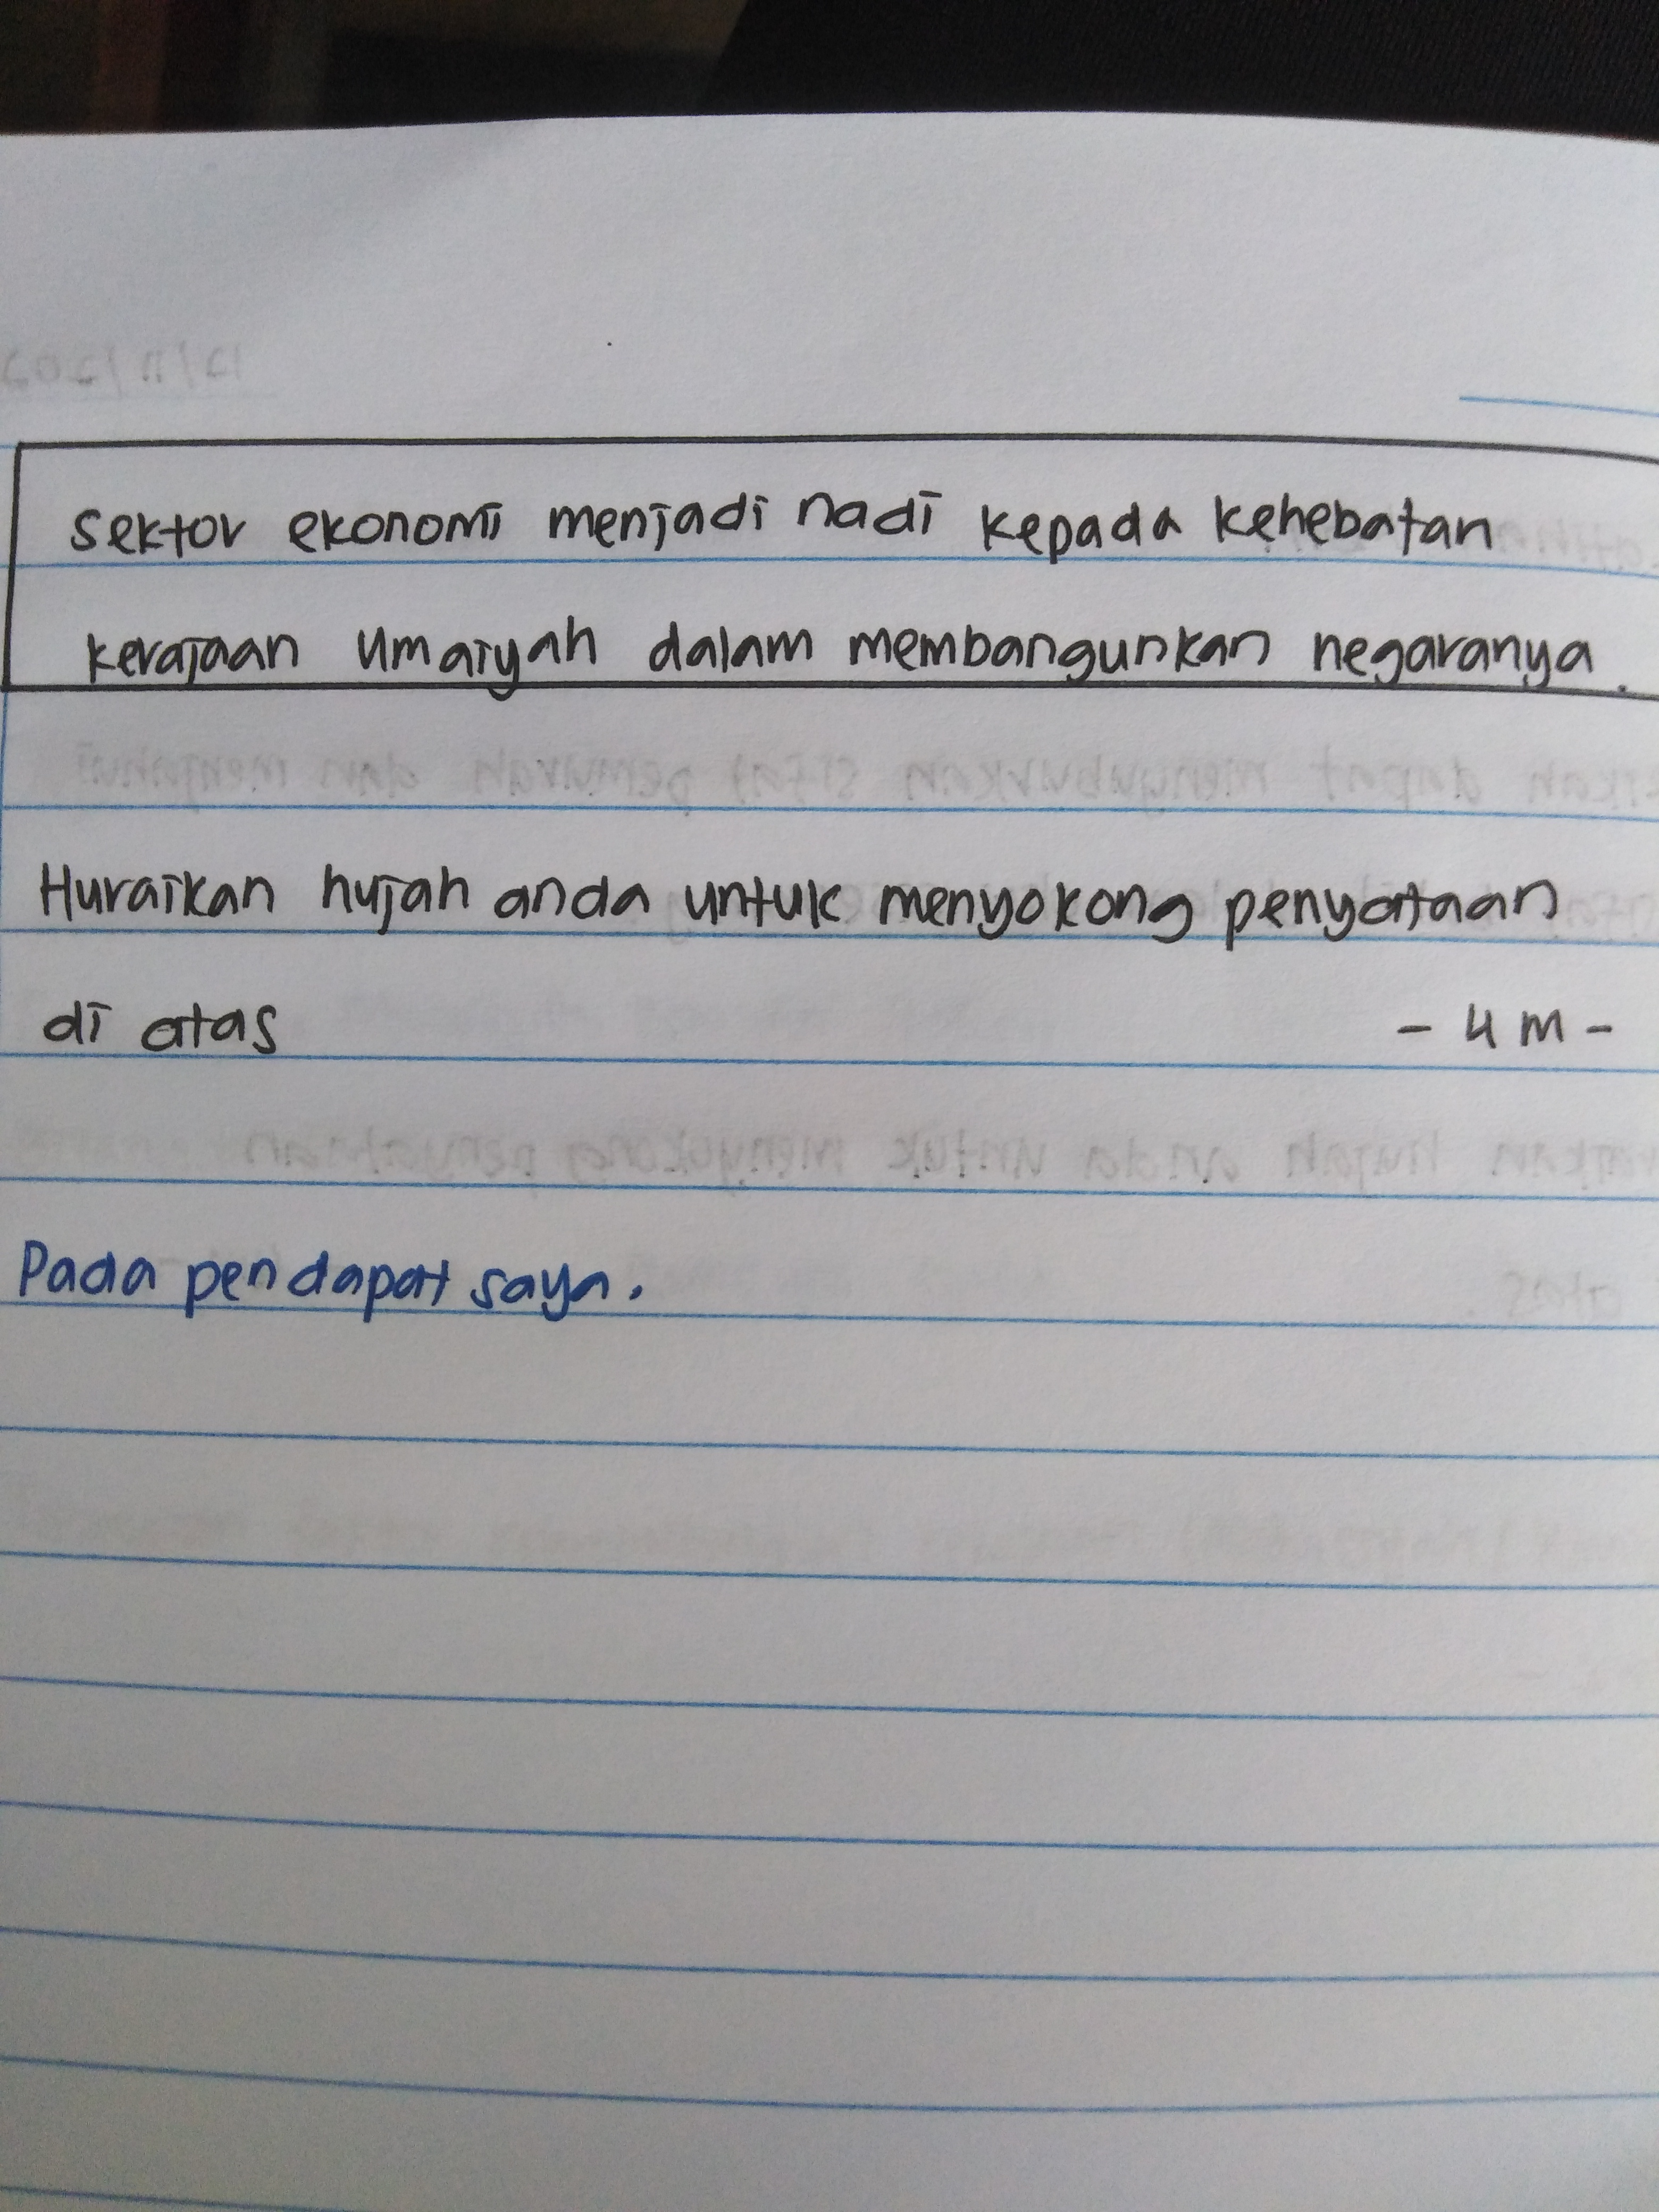 Sektor ekonomi menjadi nadi kepada kehebatan
kerajaan Umaiyah dalam membangunkan negaranya.
Huraikan hujah anda untuk menyokong penyataan
di atas - 4 m -
Pada pendapat saya,